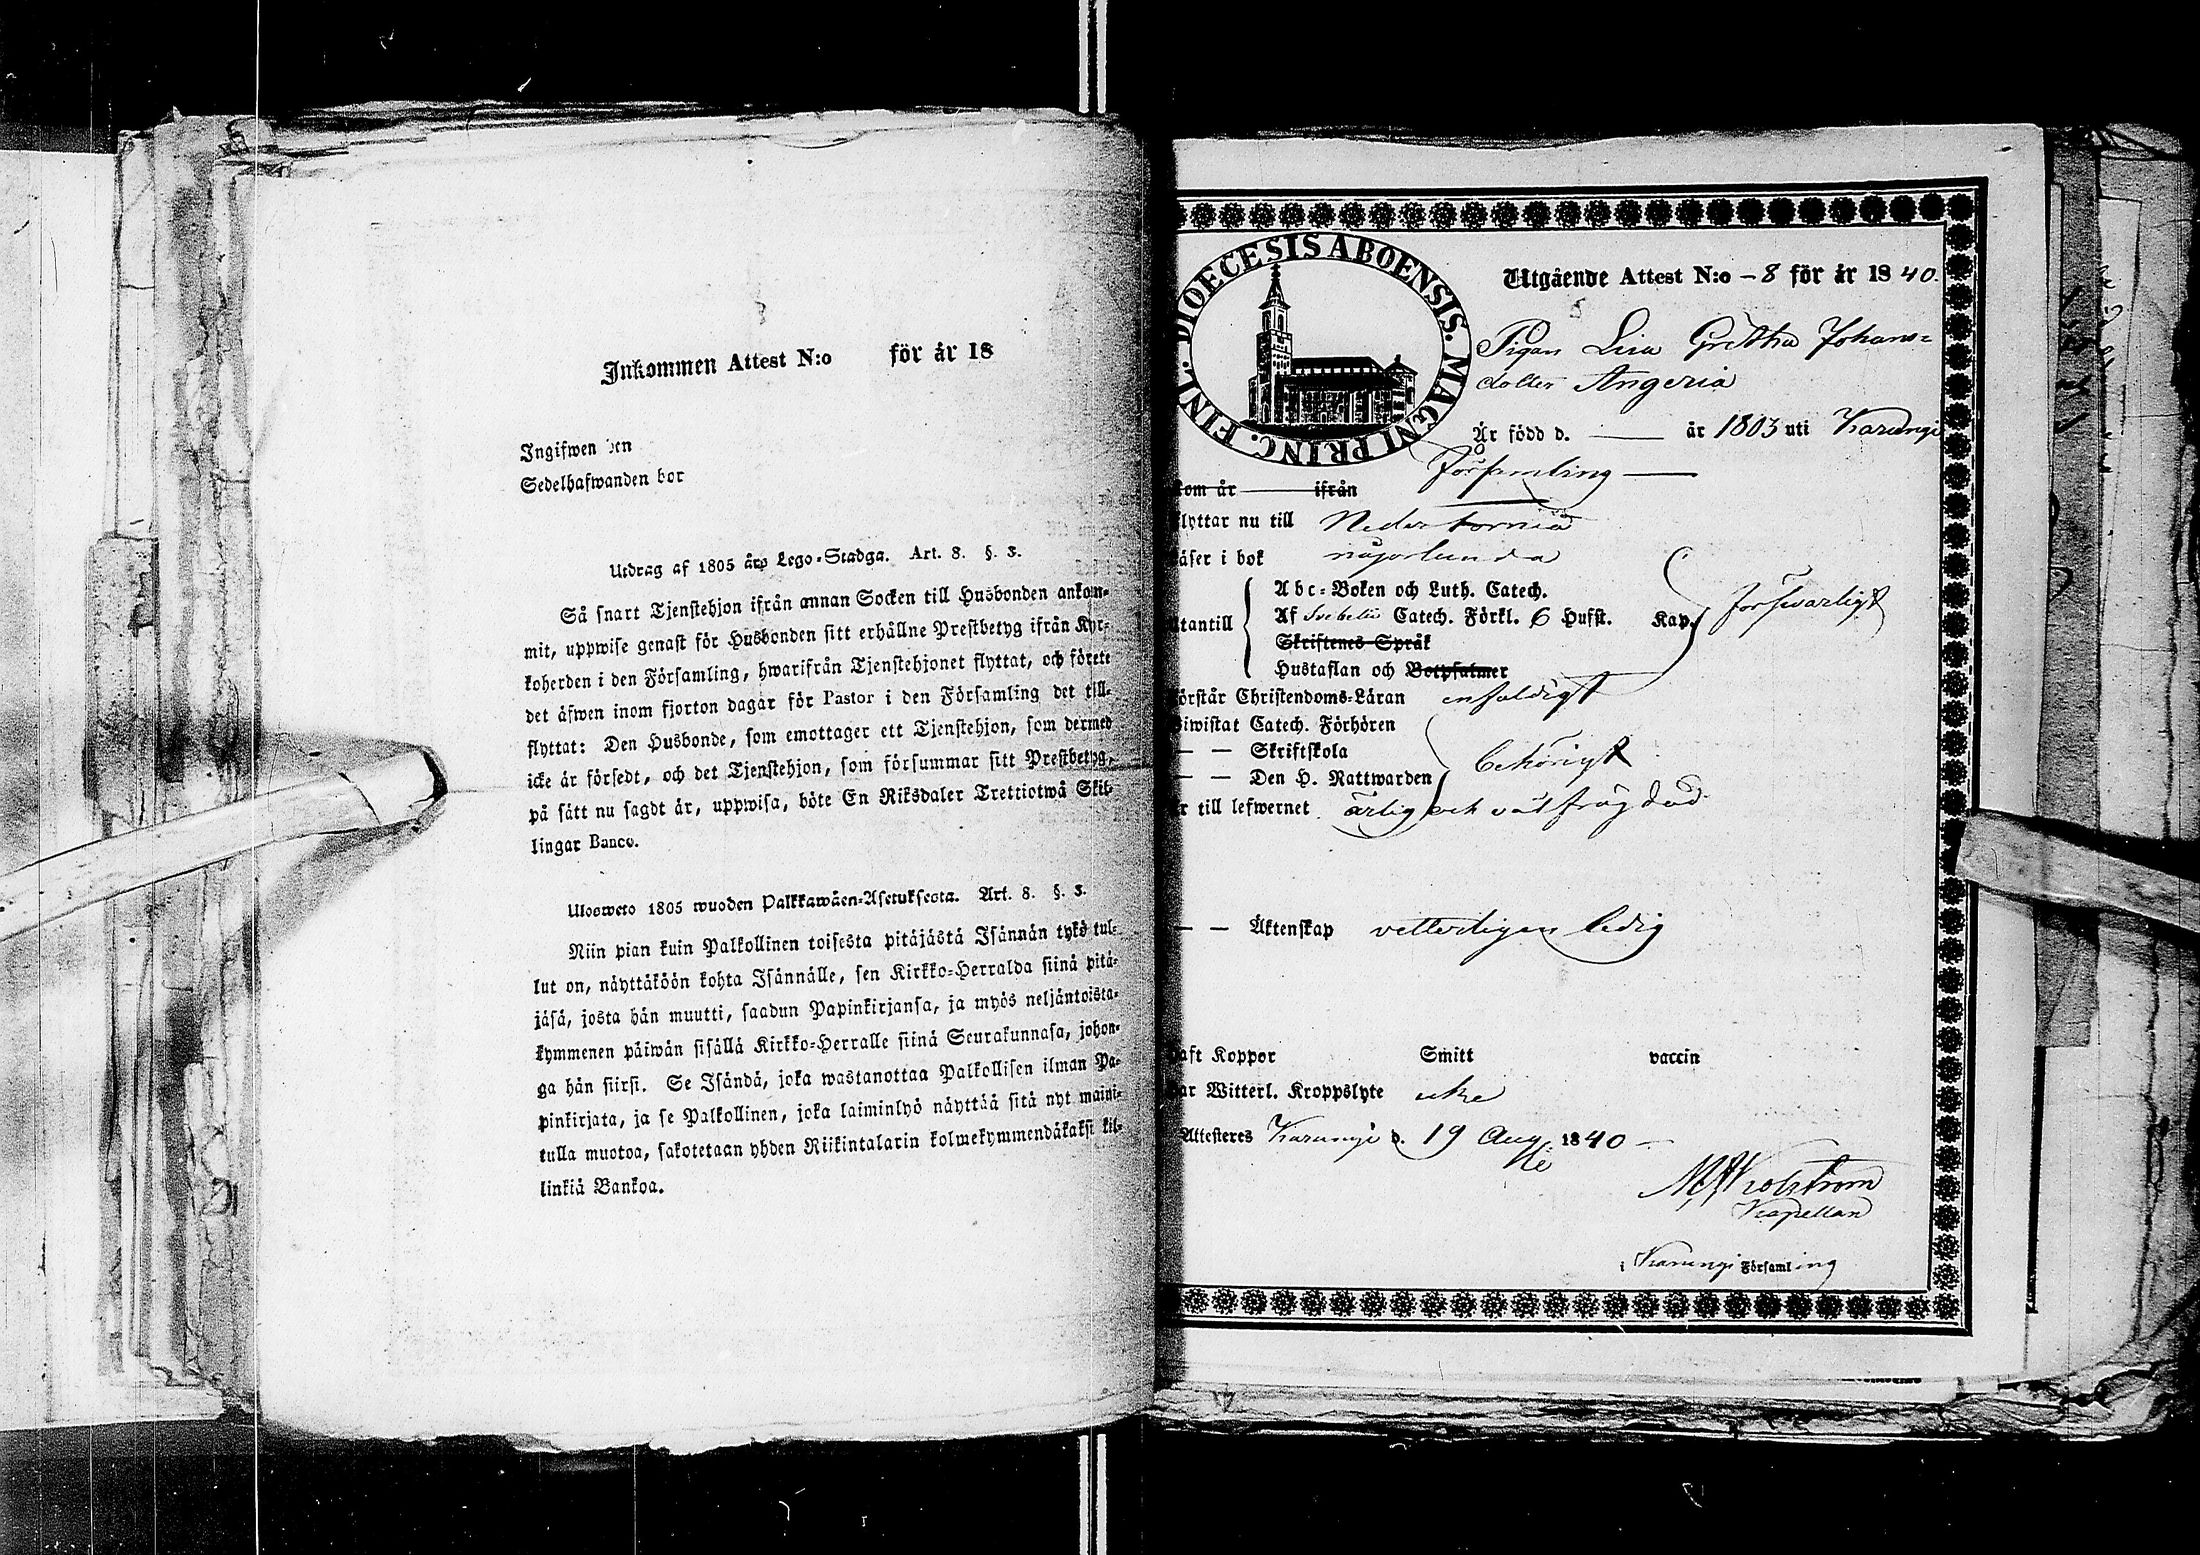 Inkommen Attest N:o för år 18
Ingifwen den
Sedelhafwanden bor
Utdrag af 1805 års Lego-Stadga. Art. 8. §. 3.
Så snart Tjenstehjon ifrån annan Socken till Husbonden ankom-
mit, uppwise genast för Husbonden sitt erhållne Prestbetyg ifrån Kyr-
koherden i den Församling, hwarifrån Tjenstehjonet flyttat, och förete
det äfwen inom fjorton dagar för Pastor i den Församling det till-
flyttat: Den Husbonde, som emottager ett Tjenstehjon, som dermed
icke är försedt, och det Tjenstehjon, som försummar sitt Prestbetyg,
på sätt nu sagdt är, uppwisa, böte En Riksdaler Trettiotwå Skil-
lingar Banco.
Ulosweto 1805 wuoden Palkkawäen-Asetuksesta. Art. 8. §. 3.
Niin pian kuin Palkollinen toisesta pitäjästä Isännän tykö tul-
lut on, näyttäköön kohta Isännälle, sen Kirkko-Herralda siinä pitä-
jäsä, josta hän muutti, saadun Papinkirjansa, ja myös neljäntoista-
kymmenen päiwän sisällä Kirkko-Herralle siinä Seurakunnasa, johon-
ga hän siirsi. Se Isändä, joka wastanottaa Palkollisen ilman Pa-
pinkirjata, ja se Palkollinen, joka laiminlyö näyttää sitä nyt maini-
tulla muotoa, sakotetaan yhden Riikintalarin kolmekymmendäkaksi kil-
linkiä Bankoa.
DIOECESIS ABOENSIS. MAGNI PRINC. FINL.
Utgående Attest N:o - 8 för år 1840.
Pigan Lisa Gretha Johans=
dotter Angeria
Är född d. — år 1803 uti Karungi
Församling —
kom år — ifrån
flyttar nu till Neder tornia
läser i bok någorlunda
Abc-Boken och Luth. Catech.
utantill Af Svebelii Catech. Förkl. 6 Hufst. Kap. försvarligt
Skriftenes Språk
Hustaflan och Botpsalmer
förstår Christendoms-Läran enfaldigt
biwistat Catech. Förhören
— — Skriftskola behörigt
— — Den H. Nattwarden
är till lefwernet ärlig och välfrägdad
— — Äktenskap vetterligen ledig
haft Koppor Smitt vaccin
har Witterl. Kroppslyte icke
Attesteres Karungi d. 19 Augsti 1840 —
Kapellan
i Karungi Församling